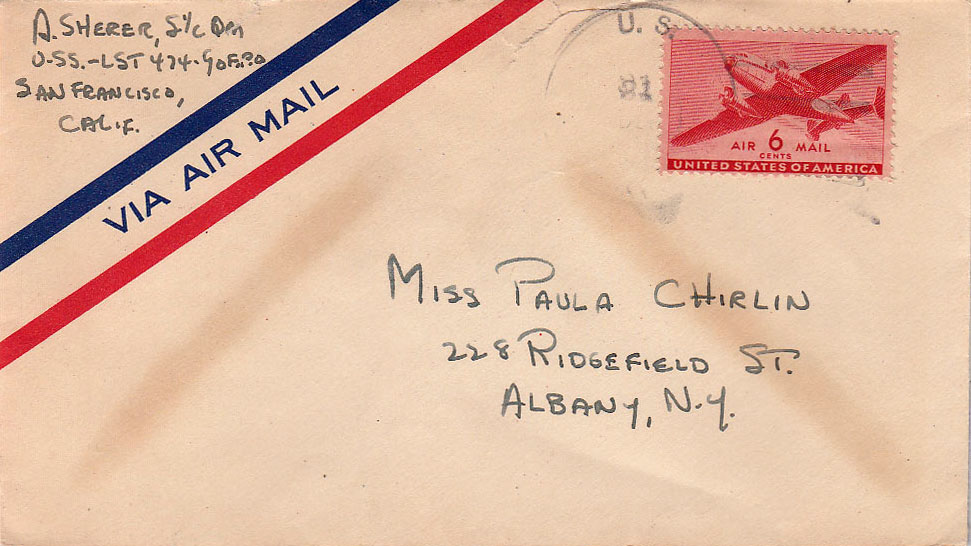 A. SHERER, S 1/c QM
U.S.S.-LST 474-% F.P.O
SAN FRANCISCO,
CALIF.
VIA AIR MAIL
U. S.
AIR 6 MAIL
CENTS
UNITED STATES OF AMERICA
MISS PAULA CHIRLIN
228 RIDGEFIELD ST.
ALBANY, N.Y.